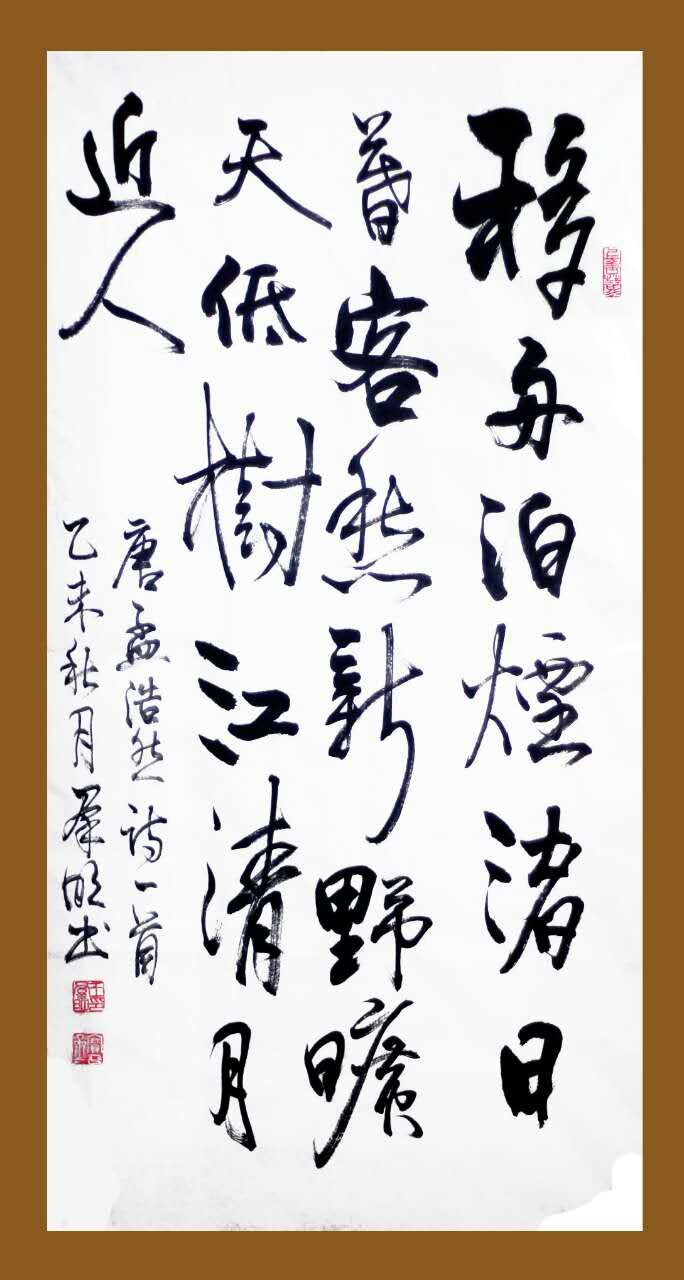 移舟泊煙渚日
暮客愁新野曠
天低樹江清月
近人
唐孟浩然詩一首
乙未秋月羣明书